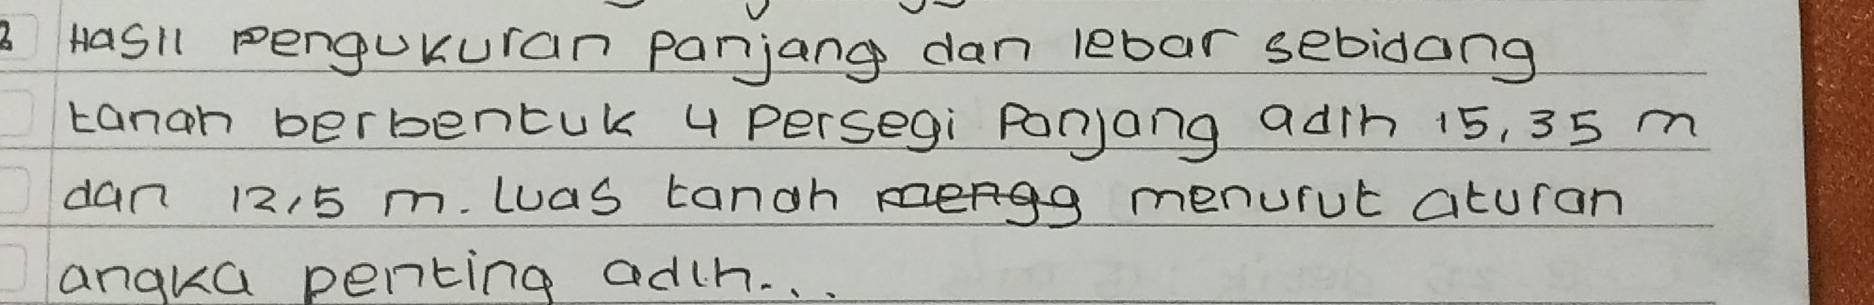 Hasil Pengukuran Panjang dan lebar sebidang
tanah berbentuk 4 Persegi Panjang adlh 15,35 m
dan 12,5 m. luas tanah mengg menurut aturan
angka penting adlh...